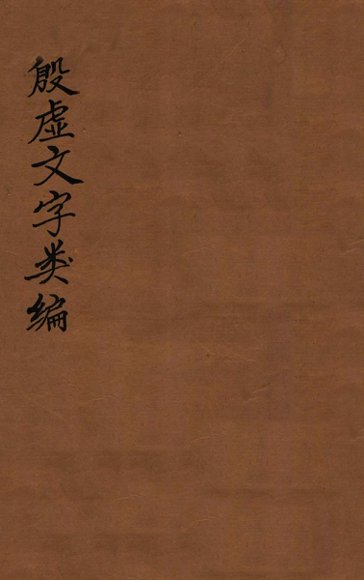 殷虚文字类编